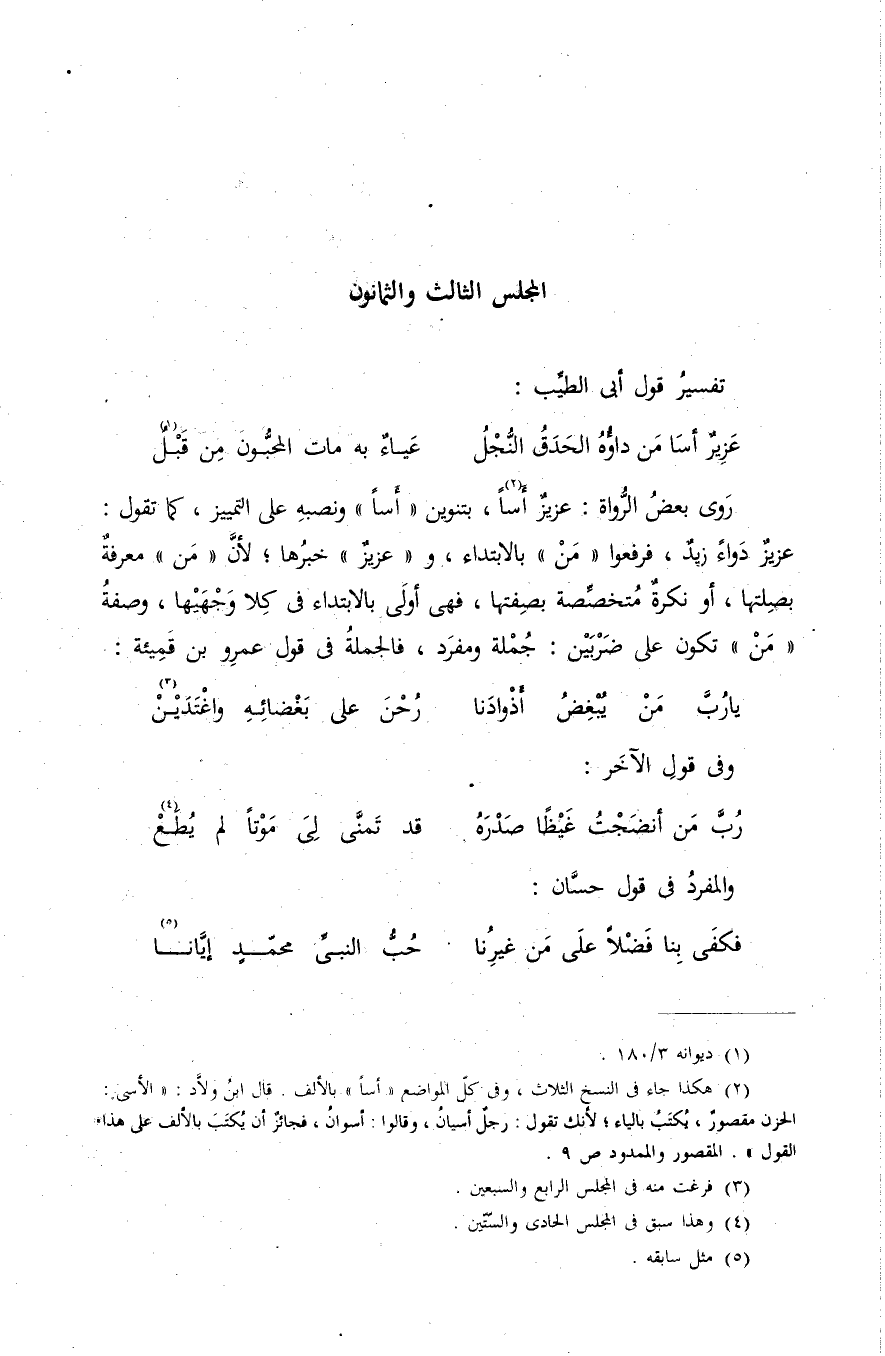 المجلس الثالث والثمانون
تفسيرُ قول أبى الطيِّب :
عَزِيزٌ أسَا مَن داوُّهُ الحَدَقُ النُّجْلُ عَيـاءٌ به مات المحبُّـونَ مِن قَبْـلُ(١)
رَوى بعضُ الرُّواة : عزيزٌ أَساً(٢) ، بتنوين « أَساً » ونصبهِ على التمييز ، كما تقول :
عزيزٌ دَواءً زيدٌ ، فرفعوا « مَنْ » بالابتداء ، و « عزيزٌ » خبرُها ؛ لأنَّ « مَن » معرفةٌ
بصِلتها ، أو نكرةٌ مُتخصِّصة بصِفتها ، فهى أولَى بالابتداء فى كِلا وَجْهَيْها ، وصفةُ
« مَنْ » تكون على ضَرْبَيْن : جُمْلة ومفرَد ، فالجملةُ فى قول عمرِو بن قَمِيئة :
يارُبَّ مَنْ يُبْغِضُ أَذْوادَنا رُحْنَ على بَغْضائِـهِ واغْتَدَيْـنْ(٣)
وفى قولِ الآخَر :
رُبَّ مَن أنضَجْتُ غَيْظًا صَدْرَهُ قد تَمنَّى لِىَ مَوْتاً لم يُطَـعْ(٤)
والمفردُ فى قول حسَّان :
فكفَى بِنا فَضْلاً علَى مَن غيرِنُا حُبُّ النبـىِّ محمّـــدٍ إيَّانـــا(٥)
(١) ديوانه ١٨٠/٣ .
(٢) هكذا جاء فى النسخ الثلاث ، وفى كلّ المواضع « أسأ » بالألف . قال ابنُ ولاَّد : « الأسى :
الحزن مقصورٌ ، يُكتَبُ بالياء ؛ لأنك تقول : رجلٌ أسيانُ ، وقالوا : أسوانُ ، فجائزٌ أن يُكتَبَ بالألف على هذا
القول » . المقصور والممدود ص ٩ .
(٣) فرغت منه فى المجلس الرابع والسبعين .
(٤) وهذا سبق فى المجلس الحادى والستّين .
(٥) مثل سابقه .